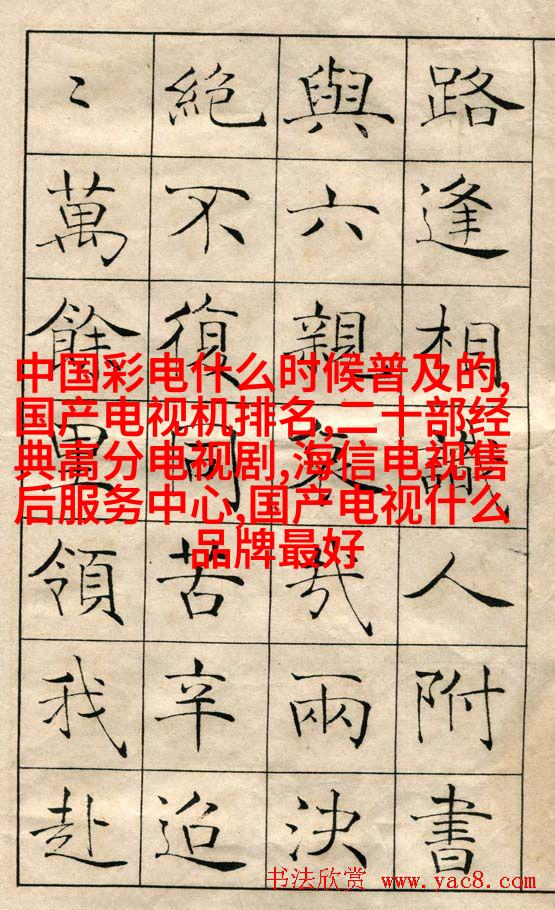 路逢相識人附書
與六親哀哉兩決
絕不復同苦辛迢
〻萬餘里領我赴
中国彩电什么时候普及的,
国产电视机排名,二十部经
典高分电视剧,海信电视售
后服务中心,国产电视什么
品牌最好
书法欣赏 www.yac8.com